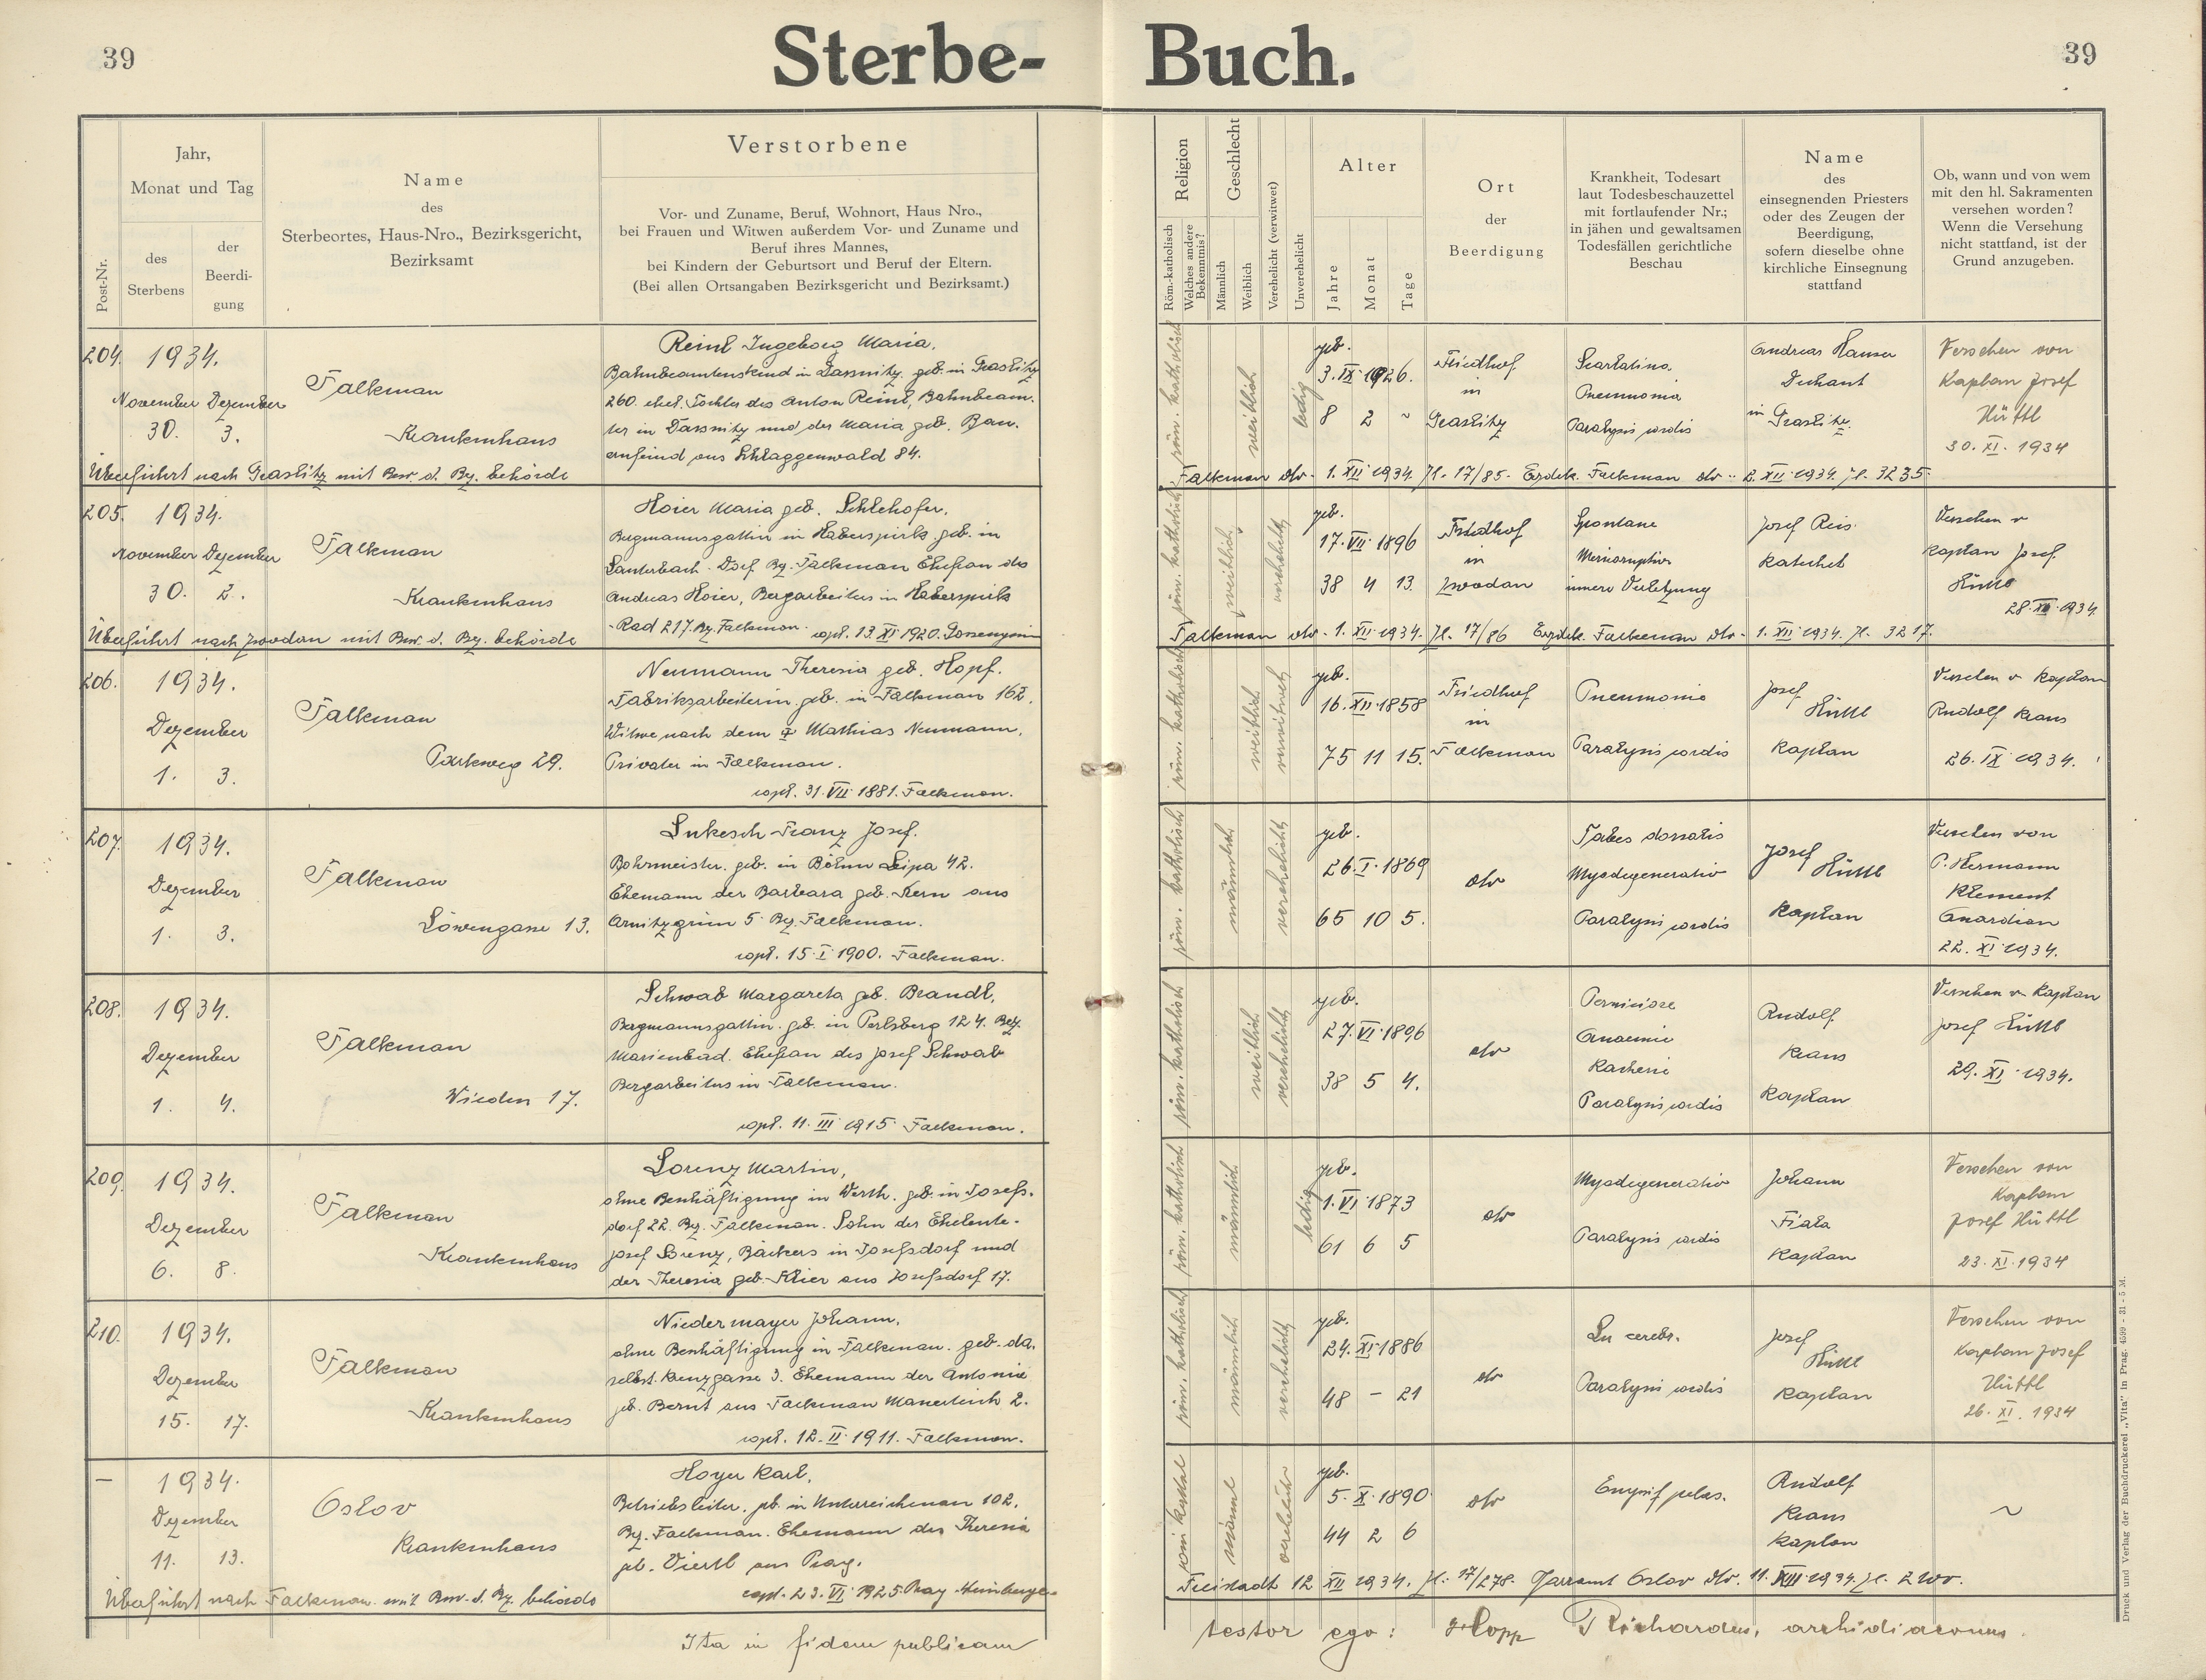 39
Sterbe- Buch.
39
Post-Nr.
Jahr,
Monat und Tag
des
Sterbens
der
Beerdi-
gung
Name
des
Sterbeortes, Haus-Nro., Bezirksgericht,
Bezirksamt
Verstorbene
Vor- und Zuname, Beruf, Wohnort, Haus Nro.,
bei Frauen und Witwen außerdem Vor- und Zuname und
Beruf ihres Mannes,
bei Kindern der Geburtsort und Beruf der Eltern.
(Bei allen Ortsangaben Bezirksgericht und Bezirksamt.)
Religion
Röm.-katholisch
Welches andere
Bekenntnis?
Geschlecht
Männlich
Weiblich
Verehelicht (verwitwet)
Unverehelicht
Alter
Jahre
Monat
Tage
Ort
der
Beerdigung
Krankheit, Todesart
laut Todesbeschauzettel
mit fortlaufender Nr.;
in jähen und gewaltsamen
Todesfällen gerichtliche
Beschau
Name
des
einsegnenden Priesters
oder des Zeugen der
Beerdigung,
sofern dieselbe ohne
kirchliche Einsegnung
stattfand
Ob, wann und von wem
mit den hl. Sakramenten
versehen worden?
Wenn die Versehung
nicht stattfand, ist der
Grund anzugeben.
204. 1934.
November Dezember
30. 3.
Falkenau
Krankenhaus
Reinl Ingeborg Maria,
Bahnbeamtenskind in Dassnitz. geb. in Graslitz
260. ehel. Tochter des Anton Reinl, Bahnbeam-
ter in Dassnitz und der Maria geb. Bau-
anfeind aus Schlaggenwald 84.
röm. katholisch
weiblich
ledig
geb.
3. IX. 1926.
8 2 ~
Friedhof
in
Graslitz
Scarlatina.
Pneumonia
Paralysis cordis
Andreas Hauser
Dechant
in Graslitz.
Versehen von
Kaplan Josef
Hüttl
30. XI. 1934
Überführt nach Graslitz mit Bew. d. Bez. behörde
Falkenau dto. 1. XII. 1934. Zl. 17/85. Erzdek. Falkenau dto. 2. XII. 1934. Zl. 3235.
205. 1934.
November Dezember
30. 2.
Falkenau
Krankenhaus
Hoier Maria geb. Schlehofer,
Bergmannsgattin in Haberspirk. geb. in
Lauterbach-Dorf Bz. Falkenau Ehefrau des
Andreas Hoier, Bergarbeiters in Haberspirk
-Rad 217. Bz. Falkenau. copl. 13. XI. 1920.
röm. katholisch
weiblich
verehelicht
geb.
17. VII. 1896
38 4 13.
Friedhof
in
Zwodau
Spontane
innere Verletzung
Josef Reis
Katechet
Versehen v
Kaplan Josef
Hüttl
Überführt nach Zwodau mit Bew. d. Bez. behörde
Falkenau dto. 1. XII. 1934. Zl. 17/86 Erzdek. Falkenau dto. 1. XII. 1934. Zl. 3217.
206. 1934.
Dezember
1. 3.
Falkenau
Parkweg 29.
Neumann Theresia geb. Hopf.
Fabriksarbeiterin. geb. in Falkenau 162.
Witwe nach dem † Mathias Neumann,
Privater in Falkenau.
copl. 31. VII. 1881. Falkenau.
röm. katholisch
weiblich
verwitwet
geb.
16. XII. 1858
75 11 15.
Friedhof
in
Falkenau
Pneumonie
Paralysis cordis
Josef
Hüttl
Kaplan
Versehen v Kaplan
Rudolf Kraus
26. IX. 1934.
207. 1934.
Dezember
1. 3.
Falkenau
Löwengasse 13.
Lukesch Franz Josef.
Bohrmeister. geb. in Böhm Leipa 42.
Ehemann der Barbara geb. Kern aus
Arnitzgrün 5. Bz. Falkenau.
copl. 15. I. 1900. Falkenau.
röm. katholisch
männlich
verehelicht
geb.
26. I. 1869
65 10 5.
dto
Tabes dorsalis
Myodegeneratio
Paralysis cordis
Josef
Hüttl
Kaplan
Versehen von
P. Hermann
Klement
Guardian
22. XI. 1934.
208. 1934.
Dezember
1. 4.
Falkenau
Wieden 17.
Schwab Margareta geb. Brandl,
Bergmannsgattin. geb. in Perlsberg 124. Bez.
Marienbad. Ehefrau des Josef Schwab
Bergarbeiters in Falkenau.
copl. 11. III. 1915. Falkenau.
röm. katholisch
weiblich
verehelicht
geb.
27. VI. 1896
38 5 4.
dto
Perniciöse
Anaemie
Kachexie
Paralysis cordis
Rudolf
Kraus
Kaplan
Versehen v Kaplan
Josef Hüttl
29. XI. 1934.
209. 1934.
Dezember
6. 8.
Falkenau
Krankenhaus
Lorenz Martin,
ohne Beschäftigung in Werth. geb. in Josefs-
dorf 22. Bz. Falkenau. Sohn der Eheleute.
Josef Lorenz, Bäckers in Josefsdorf und
der Theresia geb. Klier aus Josefsdorf 17.
röm. katholisch
männlich
ledig
geb.
1. VI. 1873
61 6 5
dto
Myodegeneratio
Paralysis cordis
Johann
Fiala
Kaplan
Versehen von
Kaplan
Josef Hüttl
23. XI. 1934
210. 1934.
Dezember
15. 17.
Falkenau
Krankenhaus
Niedermayer Johann,
ohne Beschäftigung in Falkenau. geb. da-
selbst. Kreuzgasse 3. Ehemann der Antonie
geb. Bernt aus Falkenau 2.
copl. 12. II. 1911. Falkenau.
röm. katholisch
männlich
verehelicht
geb.
24. XI. 1886
48 - 21
dto
Lu cerebr.
Paralysis cordis
Josef
Hüttl
Kaplan
Versehen von
Kaplan Josef
Hüttl
26. XI. 1934
— 1934.
Dezember
11. 13.
Oslov
Krankenhaus
Hoyer Karl,
Betriebsleiter. geb. in Unterreichenau 102.
Bz. Falkenau. Ehemann der Theresia
geb. Viertl aus Prag.
copl. 23. VI. 1925. Prag
männl
geb.
5. X. 1890.
44 2 6
dto
Rudolf
Kraus
Kaplan
~
Überführt nach Falkenau mit Bew. d. Bz. behörde
Freistadt 12. XII. 1934. Zl. 17/278. Pfarramt Oslov dto. 11. XII. 1934.
Ita in fidem publicam
testor ego: Hopp Richardus, archidiaconus.
Druck und Verlag der Buchdruckerei „Vita" in Prag. 4599 - 31 - 5 M.